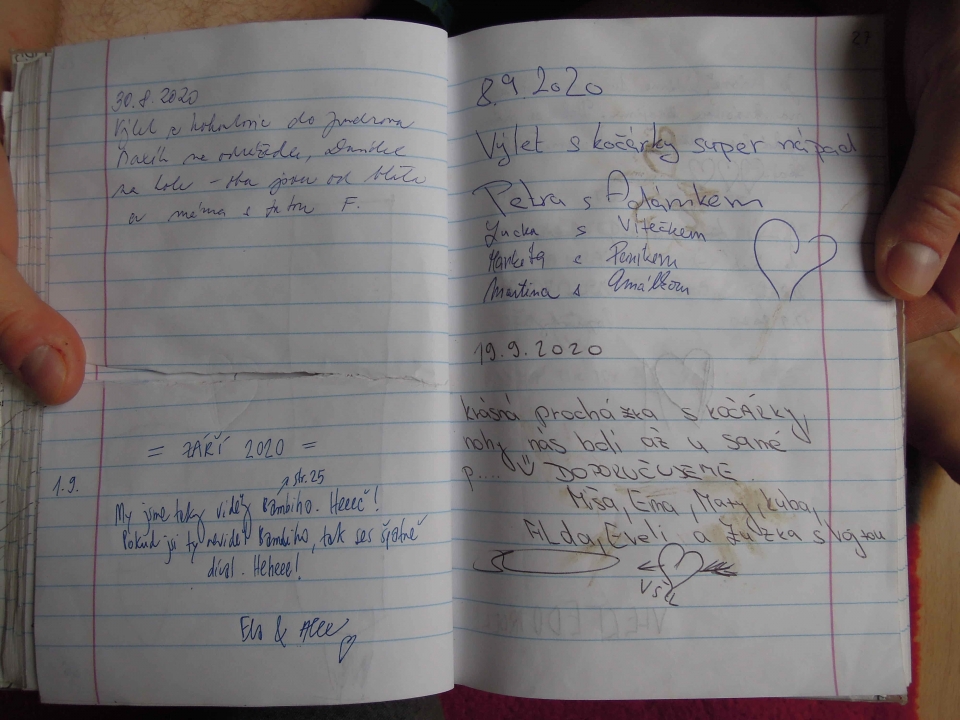 30.8.2020
Výlet z do
na, Daniele
na kole – jsou od bláta
a máma s tátou F.
= ZÁŘÍ 2020 =
str. 25
1.9.
My jsme taky viděly Bambiho. Heeeč!
Pokud jsi ty neviděl Bambiho, tak ses špatně
díval. Heheee!
&
27
8.9.2020
Výlet s kočárky super nápad
Petra s Adámkem
Lucka s Vítečkem
Markéta s Peníkem
Martina s Amálkou
19.9.2020
krásná procházka s kočárky
nohy nás bolí až u samé
p.... DOPORUČUJEME.
Míša, Ema, Maty, Kuba,
Alda, Eveli a Zuzka s Vojtou